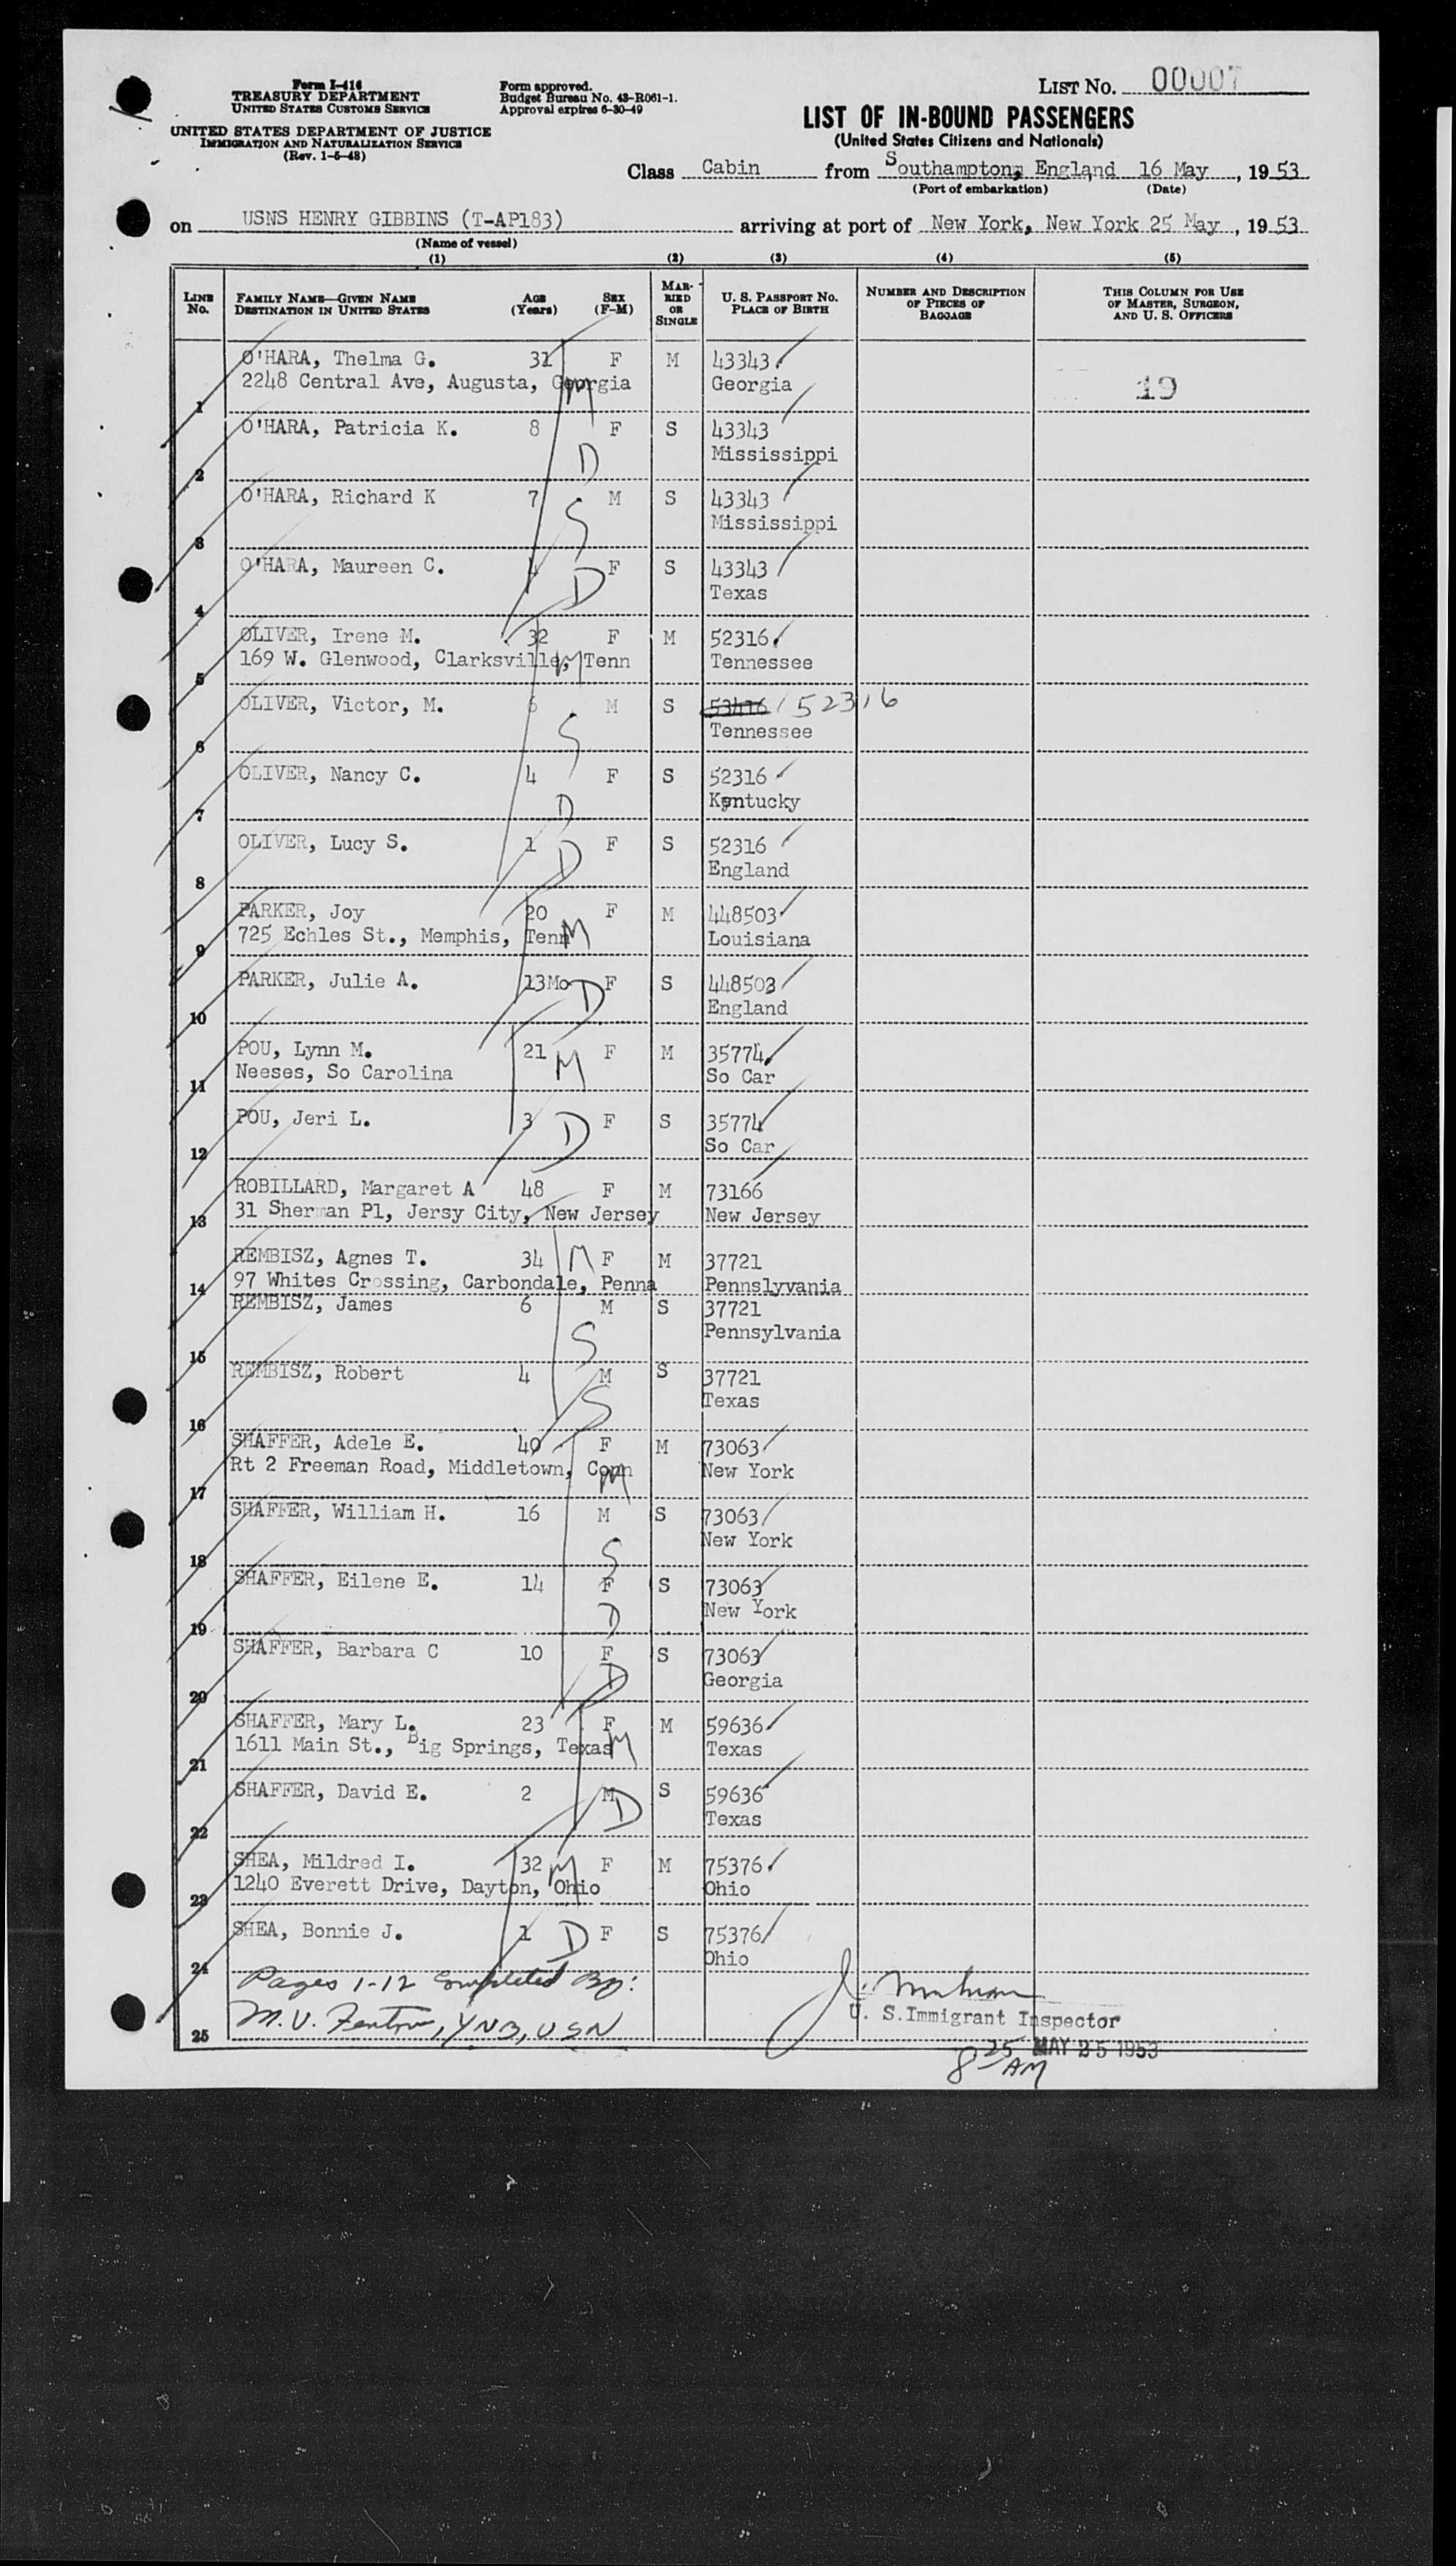 Form I-416
TREASURY DEPARTMENT
UNITED STATES CUSTOMS SERVICE
UNITED STATES DEPARTMENT OF JUSTICE
IMMIGRATION AND NATURALIZATION SERVICE
(Rev. 1-5-48)
Form approved.
Budget Bureau No. 43-R061-1.
Approval expires 6-30-49
LIST No. 00007
LIST OF IN-BOUND PASSENGERS
(United States Citizens and Nationals)
Class Cabin from Southampton, England 16 May, 1953
(Port of embarkation) (Date)
on USNS HENRY GIBBINS (T-AP183) arriving at port of New York, New York 25 May, 1953
(Name of vessel)
(1) (2) (3) (4) (5)
LINE No. FAMILY NAME—GIVEN NAME DESTINATION IN UNITED STATES AGE (Years) SEX (F-M) MARRIED OR SINGLE U. S. PASSPORT No. PLACE OF BIRTH NUMBER AND DESCRIPTION OF PIECES OF BAGGAGE THIS COLUMN FOR USE OF MASTER, SURGEON, AND U. S. OFFICERS
O'HARA, Thelma G. 31 F M 43343
2248 Central Ave, Augusta, Georgia M Georgia 19
1
O'HARA, Patricia K. 8 F S 43343
2 D Mississippi
O'HARA, Richard K 7 M S 43343
3 S Mississippi
O'HARA, Maureen C. 4 F S 43343
4 D Texas
OLIVER, Irene M. 32 F M 52316
169 W. Glenwood, Clarksville, Tenn M Tennessee
5
OLIVER, Victor, M. 6 M S 53416 52316
6 S Tennessee
OLIVER, Nancy C. 4 F S 52316
7 D Kentucky
OLIVER, Lucy S. 1 F S 52316
8 D England
PARKER, Joy 20 F M 448503
725 Echles St., Memphis, Tenn M Louisiana
9
PARKER, Julie A. 13Mo F S 448503
10 D England
POU, Lynn M. 21 F M 35774
Neeses, So Carolina M So Car
11
POU, Jeri L. 3 F S 35774
12 D So Car
ROBILLARD, Margaret A 48 F M 73166
31 Sherman Pl, Jersy City, New Jersey New Jersey
13
REMBISZ, Agnes T. 34 M F M 37721
97 Whites Crossing, Carbondale, Penna Pennslyvania
14
REMBISZ, James 6 M S 37721
15 S Pennsylvania
REMBISZ, Robert 4 M S 37721
16 S Texas
SHAFFER, Adele E. 40 F M 73063
Rt 2 Freeman Road, Middletown, Conn M New York
17
SHAFFER, William H. 16 M S 73063
18 S New York
SHAFFER, Eilene E. 14 F S 73063
19 D New York
SHAFFER, Barbara C 10 F S 73063
20 D Georgia
SHAFFER, Mary L. 23 F M 59636
1611 Main St., Big Springs, Texas M Texas
21
SHAFFER, David E. 2 M S 59636
22 D Texas
SHEA, Mildred I. 32 M F M 75376
1240 Everett Drive, Dayton, Ohio Ohio
23
SHEA, Bonnie J. 1 D F S 75376
24 Ohio
Pages 1-12 Completed By:
M. V. Fenton, YN3, USN
25
U. S. Immigrant Inspector
MAY 25 1953
8 25 AM